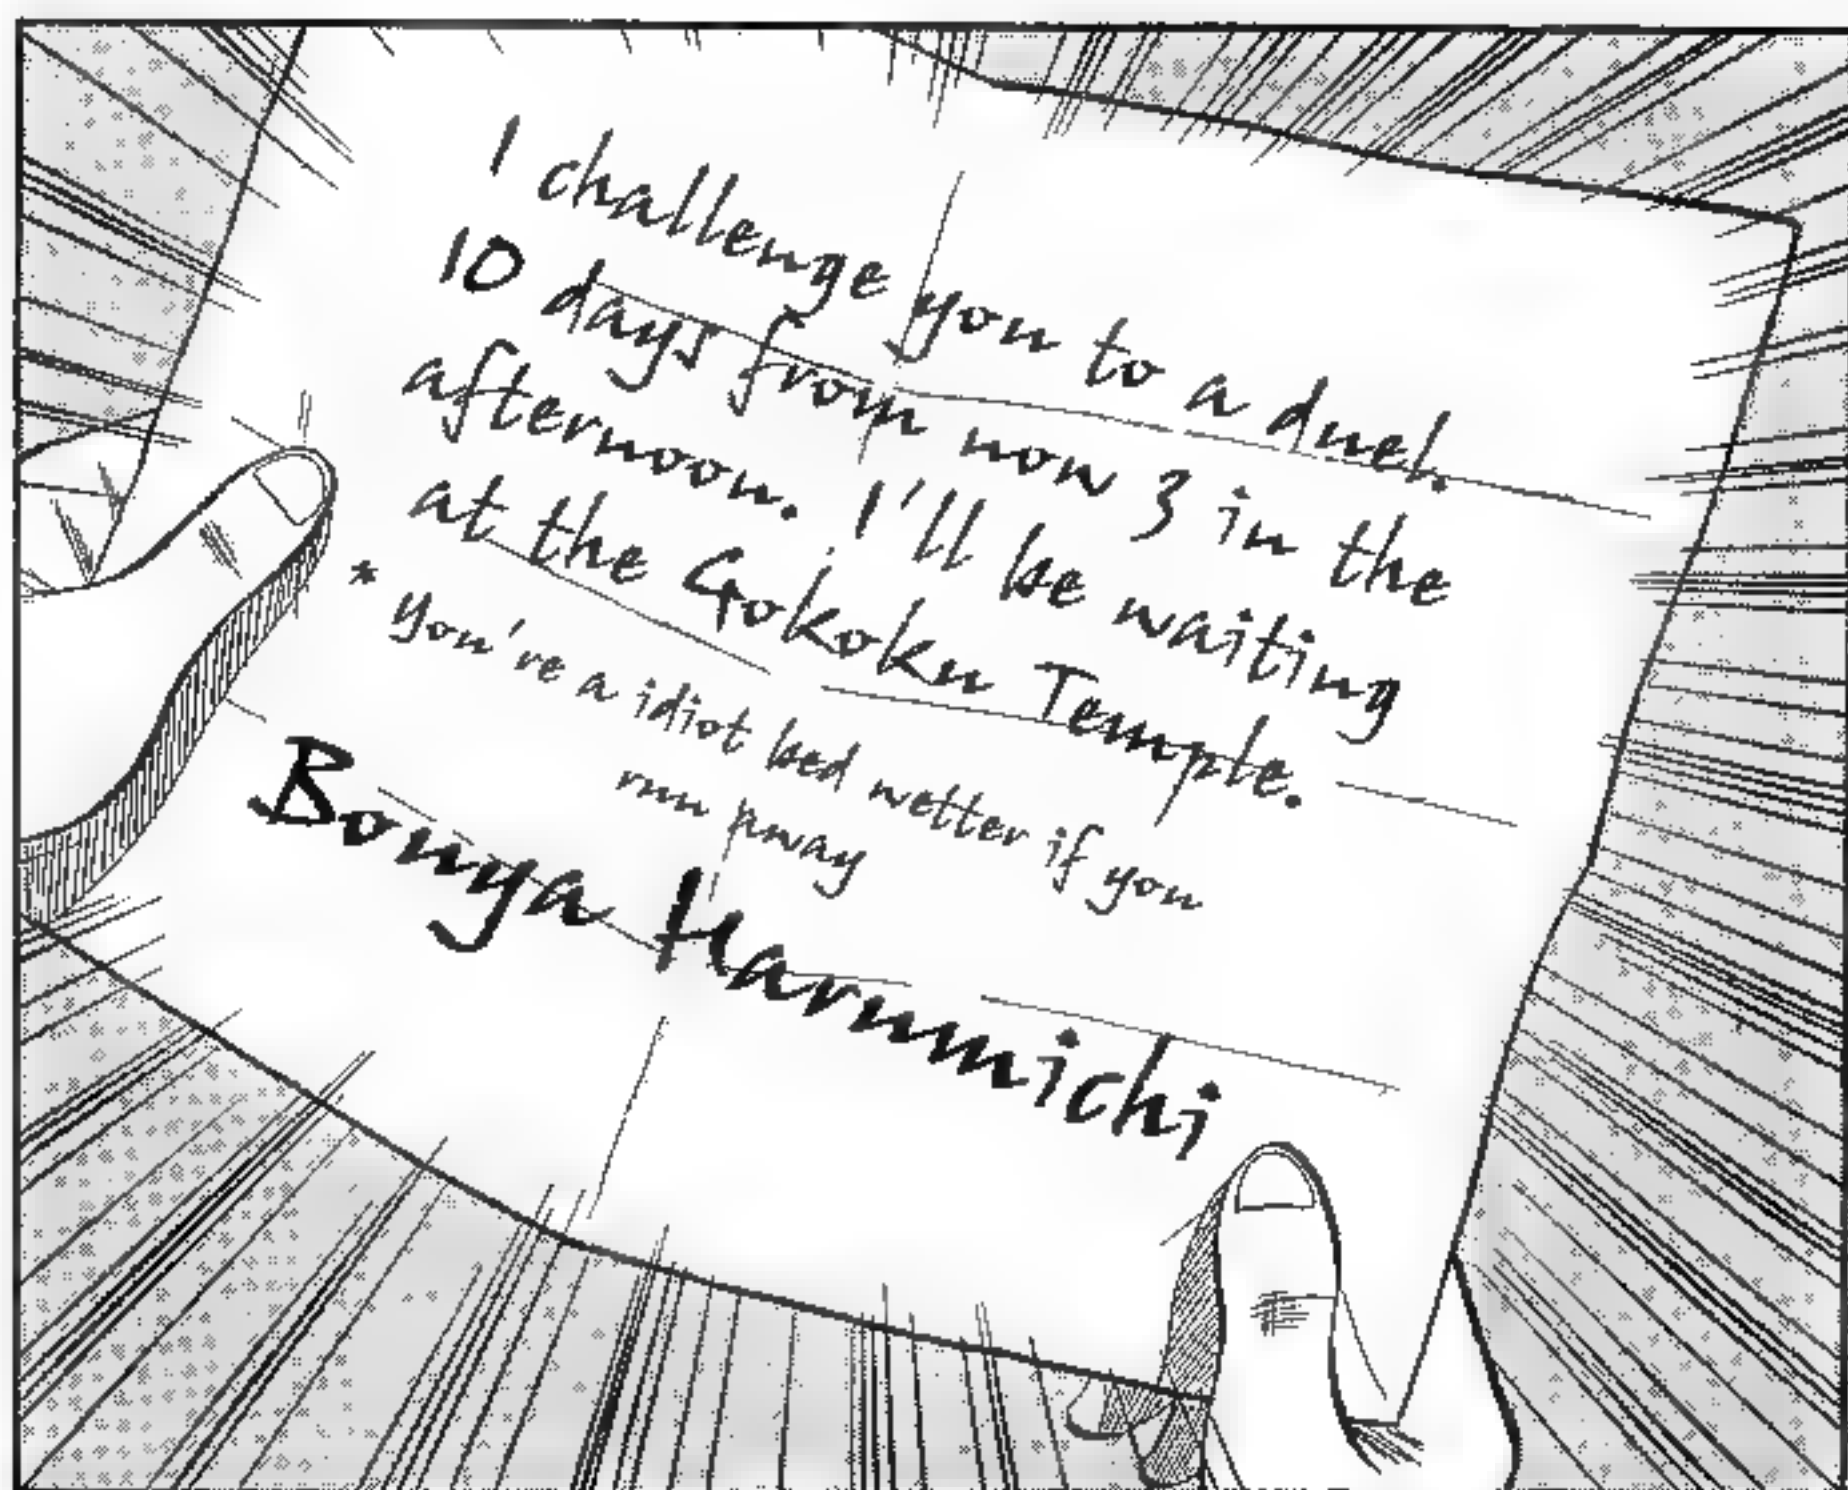 I challenge you to a duel.
10 days from now 3 in the
afternoon. I'll be waiting
at the Gokoku Temple.
* You're a idiot bed wetter if you
run away
Bouya Harumichi